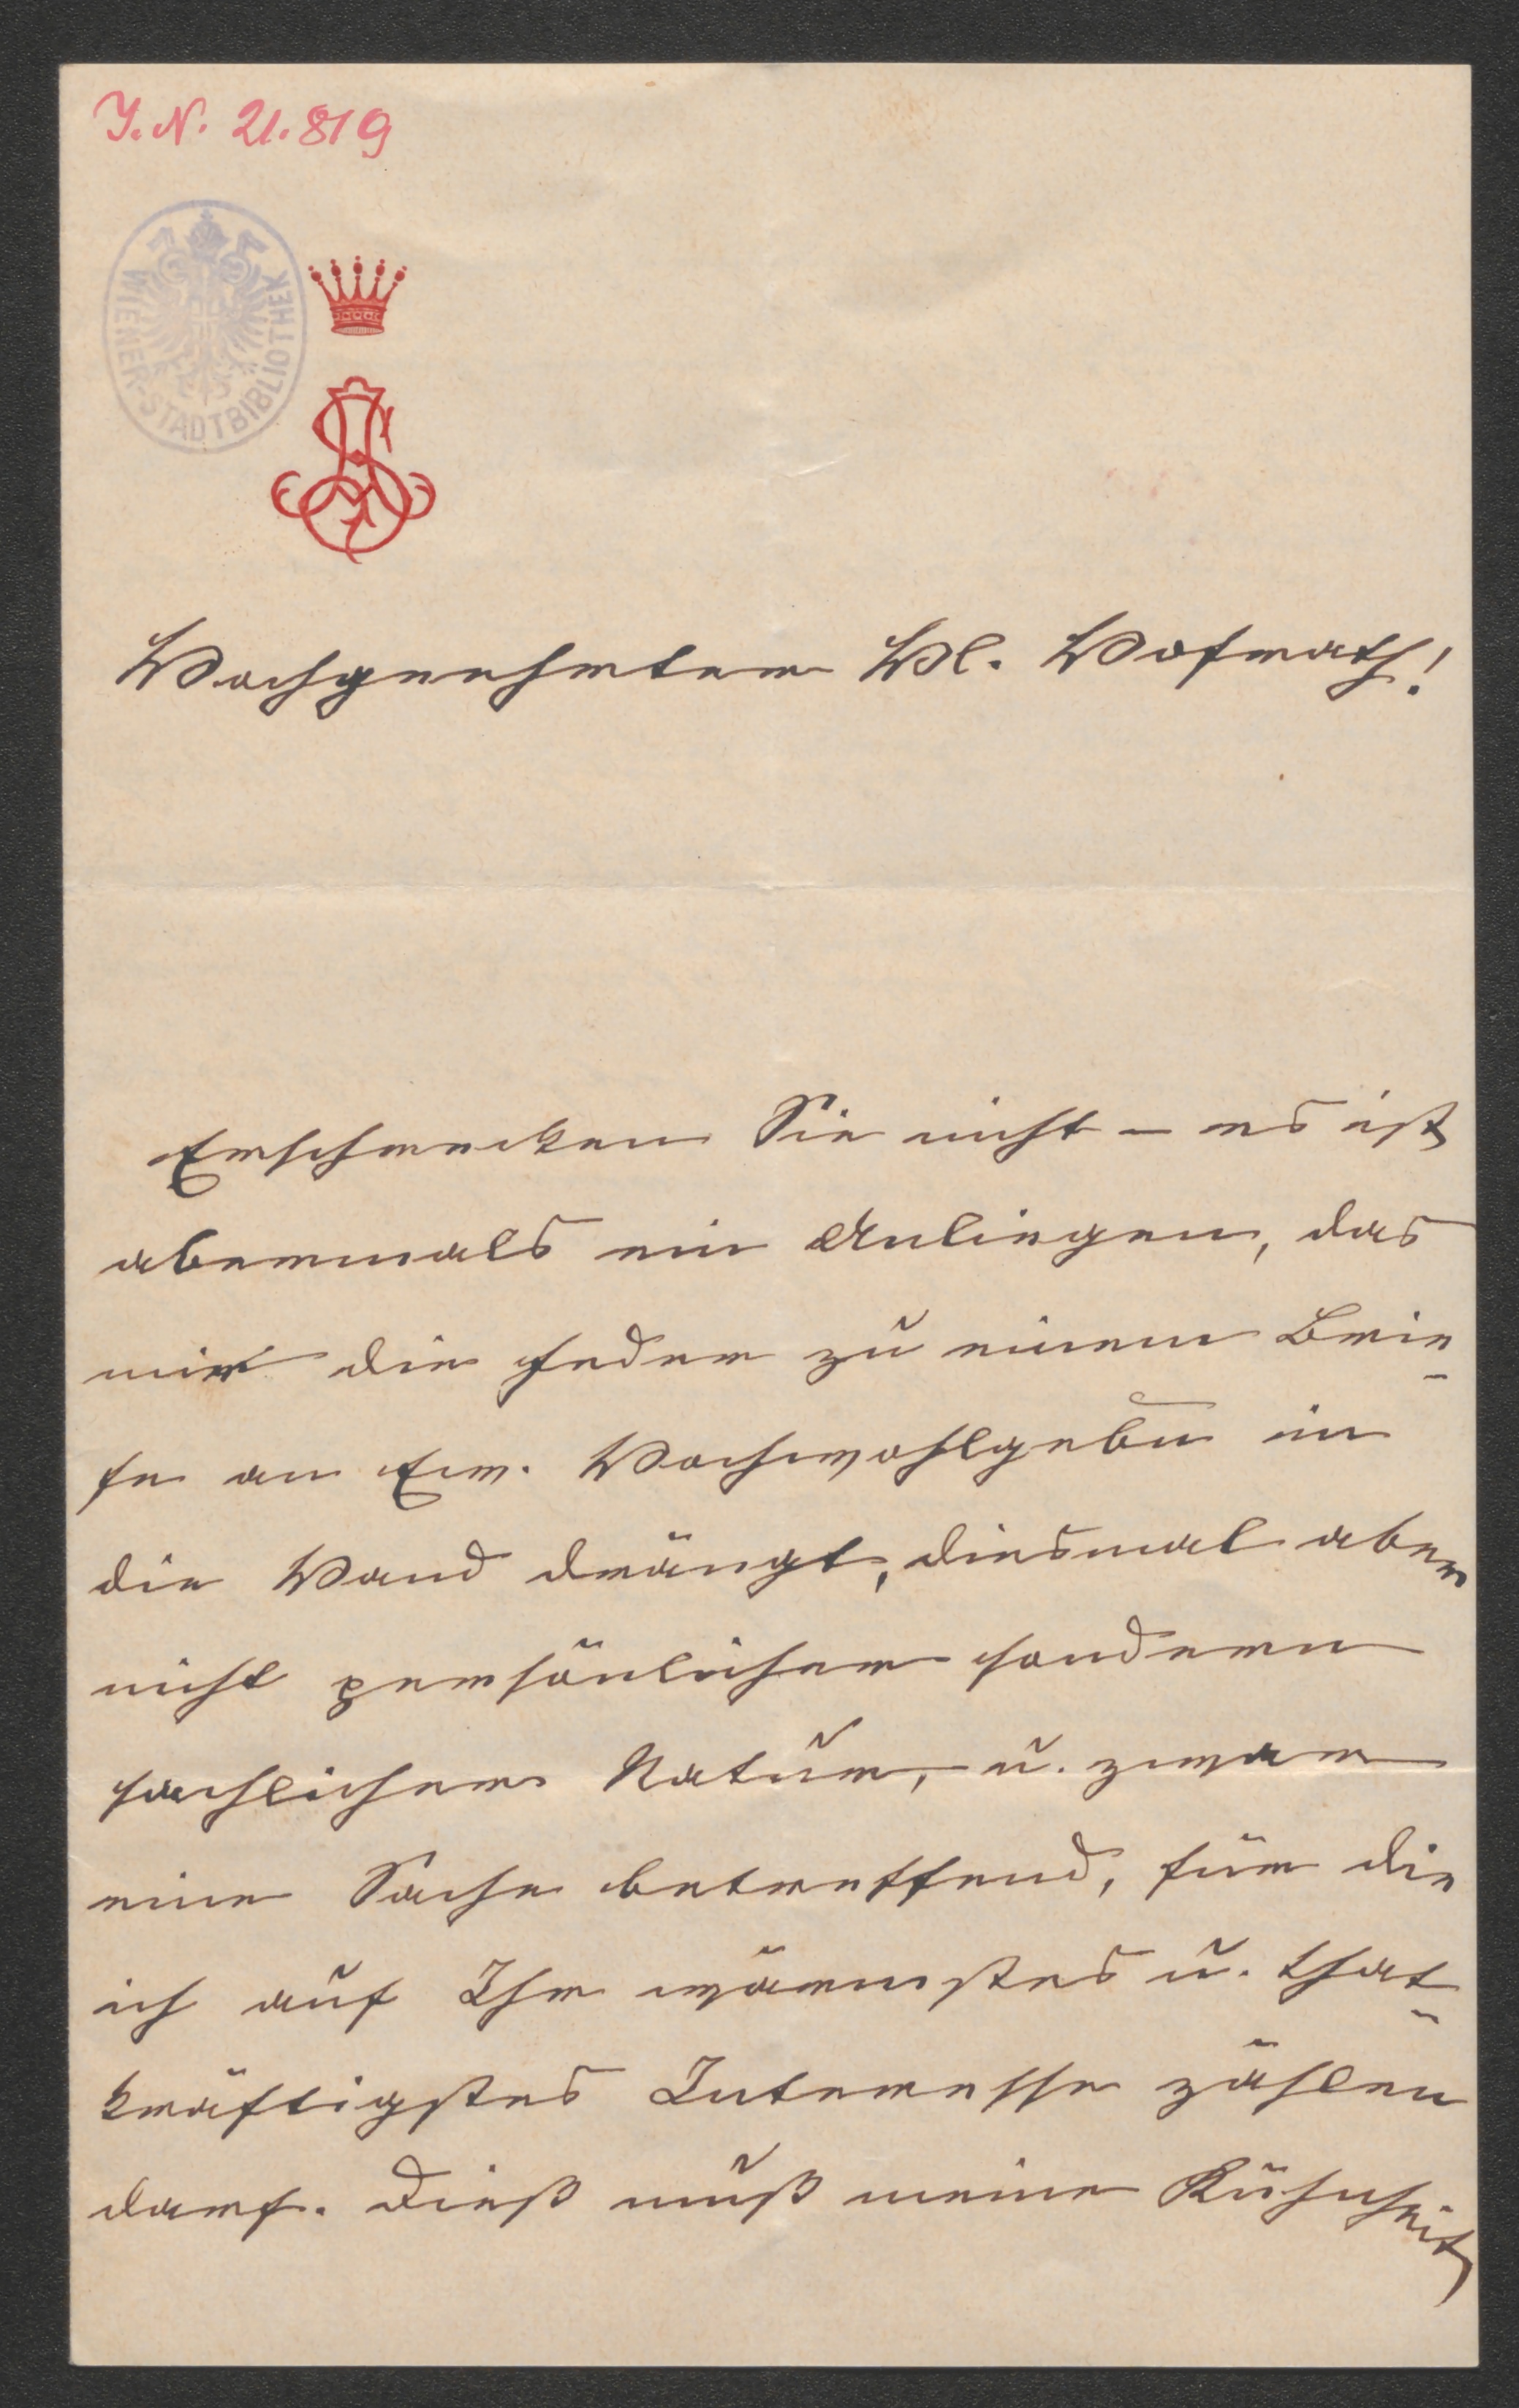 J. N. 21.819
WIENER-STADTBIBLIOTHEK
Hochgeehrter Hl. Hofrath!
Erschrecken Sie nicht – es ist
abermals ein Anliegen, das
mir die Feder zu einem Brie-
fe an Ew. Hochwohlgebn in
die Hand drängt, diesmal aber
nicht persönlicher sondern
sachlicher Natur, u. zwar
eine Sache betreffend, für die
ich auf Ihr wärmstes u. that-
kräftigstes Interesse zählen
darf. Dieß muß meine Kühnheit